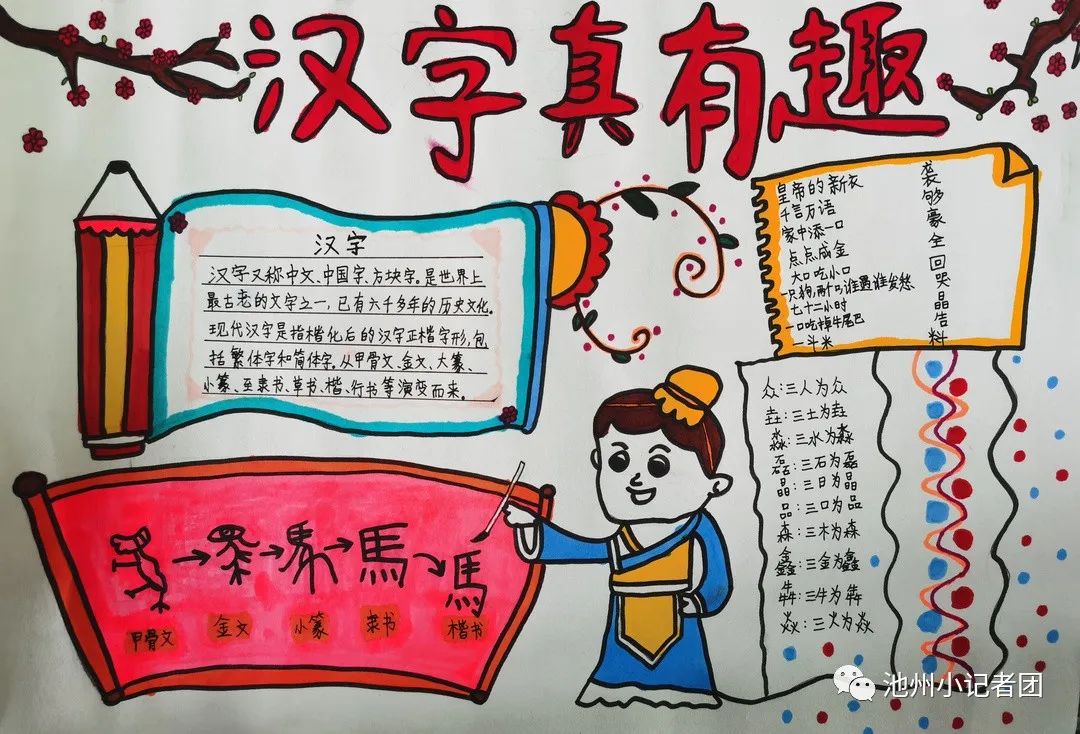 汉字真有趣
汉字
汉字又称中文、中国字、方块字。是世界上
最古老的文字之一,已有六千多年的历史文化。
现代汉字是指楷化后的汉字正楷字形,包
括繁体字和简体字。从甲骨文、金文、大篆、
小篆、至隶书、草书、楷、行书等演变而来。
皇帝的新衣 袭
千言万语 够
家中添一口 豪
点点成金 全
大口吃小口 回
一只狗,两个口,谁遇谁发愁 哭
七十二小时 晶
一口吃掉牛尾巴 告
一斗米 料
众:三人为众
垚:三土为垚
淼:三水为淼
磊:三石为磊
晶:三日为晶
品:三口为品
森:三木为森
鑫:三金为鑫
犇:三牛为犇
焱:三火为焱
馬 馬
甲骨文 金文 小篆 隶书 楷书
池州小记者团